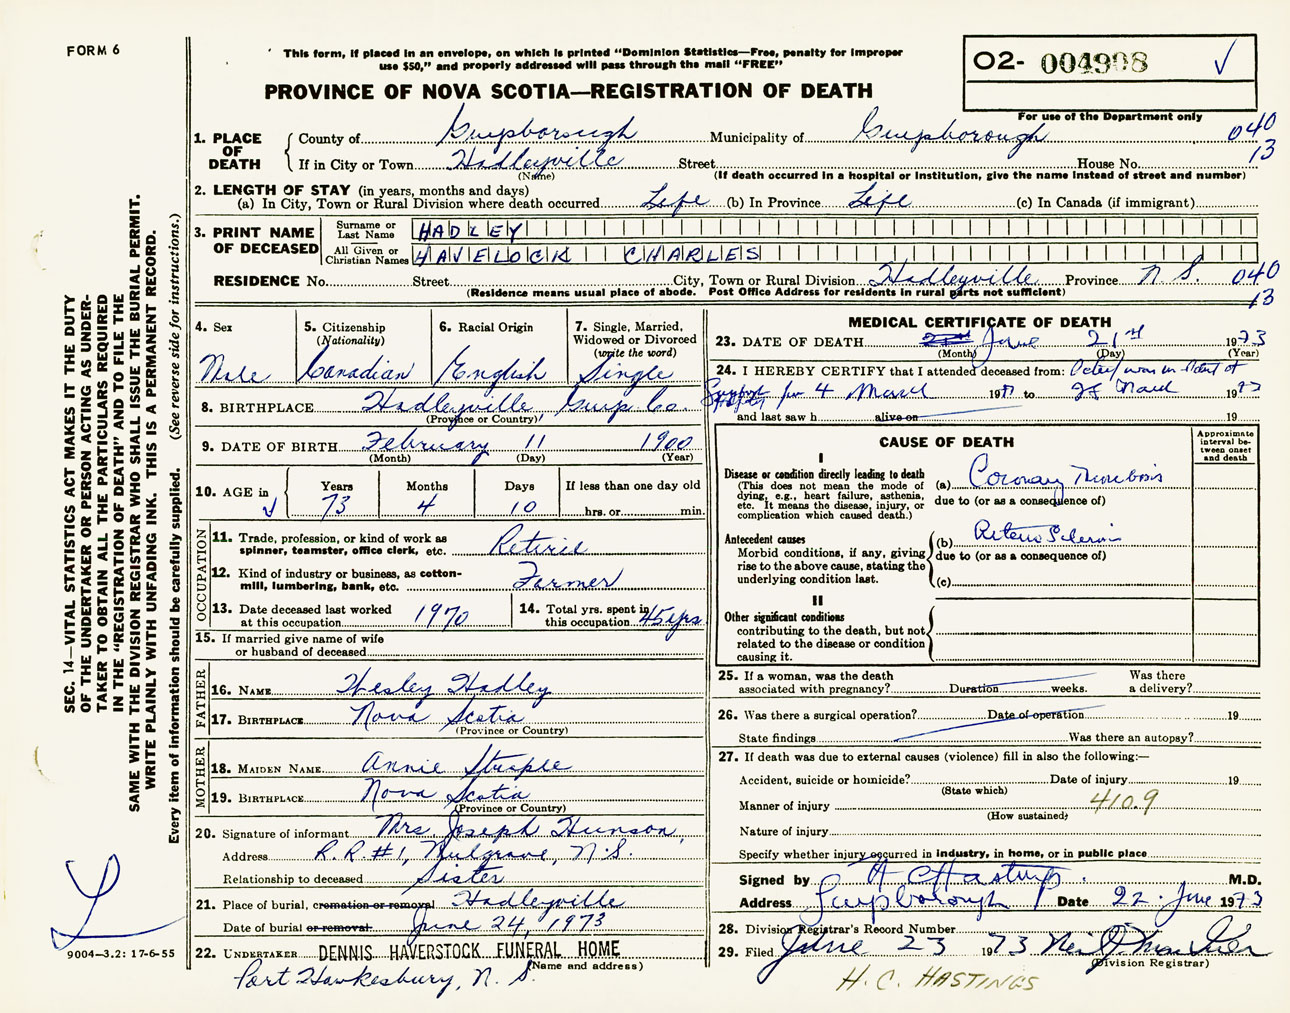 FORM 6
This form, if placed in an envelope, on which is printed "Dominion Statistics—Free, penalty for improper
use $50," and properly addressed will pass through the mail "FREE"
O2- 004998 ✓
PROVINCE OF NOVA SCOTIA—REGISTRATION OF DEATH
For use of the Department only
1. PLACE OF DEATH
County of Guysborough Municipality of Guysborough 040
If in City or Town Hadleyville Street House No. 13
(Name) (If death occurred in a hospital or institution, give the name instead of street and number)
2. LENGTH OF STAY (in years, months and days)
(a) In City, Town or Rural Division where death occurred Life (b) In Province Life (c) In Canada (if immigrant)
3. PRINT NAME OF DECEASED
Surname or Last Name HADLEY
All Given or Christian Names HAVELOCK CHARLES
RESIDENCE No. Street City, Town or Rural Division Hadleyville Province N.S. 040
(Residence means usual place of abode. Post Office Address for residents in rural parts not sufficient) 13
4. Sex
Male
5. Citizenship
(Nationality)
Canadian
6. Racial Origin
English
7. Single, Married,
Widowed or Divorced
(write the word)
Single
8. BIRTHPLACE Hadleyville Guys. Co.
(Province or Country)
9. DATE OF BIRTH February 11 1900
(Month) (Day) (Year)
10. AGE in ✓
Years Months Days If less than one day old
73 4 10 hrs. or min.
OCCUPATION
11. Trade, profession, or kind of work as
spinner, teamster, office clerk, etc. Retired
12. Kind of industry or business, as cotton-
mill, lumbering, bank, etc. Farmer
13. Date deceased last worked
at this occupation 1970
14. Total yrs. spent in
this occupation 45 yrs
15. If married give name of wife
or husband of deceased
FATHER
16. NAME Wesley Hadley
17. BIRTHPLACE Nova Scotia
(Province or Country)
MOTHER
18. MAIDEN NAME Annie
19. BIRTHPLACE Nova Scotia
(Province or Country)
20. Signature of informant Mrs. Joseph
Address R.R.#1, Mulgrave, N.S.
Relationship to deceased Sister
21. Place of burial, cremation or removal Hadleyville
Date of burial or removal June 24, 1973
22. UNDERTAKER DENNIS HAVERSTOCK FUNERAL HOME
(Name and address)
Port Hawkesbury, N.S.
MEDICAL CERTIFICATE OF DEATH
23. DATE OF DEATH June 21st 1973
(Month) (Day) (Year)
24. I HEREBY CERTIFY that I attended deceased from:
for 4 March 19 to March 1973
and last saw h alive on 19
CAUSE OF DEATH
Approximate interval be-tween onset and death
I
Disease or condition directly leading to death
(This does not mean the mode of
dying, e.g., heart failure, asthenia,
etc. It means the disease, injury, or
complication which caused death.)
(a) Coronary Thrombosis
due to (or as a consequence of)
Antecedent causes
Morbid conditions, if any, giving
rise to the above cause, stating the
underlying condition last.
(b)
due to (or as a consequence of)
(c)
II
Other significant conditions
contributing to the death, but not
related to the disease or condition
causing it.
25. If a woman, was the death
associated with pregnancy? Duration weeks. Was there
a delivery?
26. Was there a surgical operation? Date of operation 19
State findings Was there an autopsy?
27. If death was due to external causes (violence) fill in also the following:—
Accident, suicide or homicide? Date of injury 19
(State which)
Manner of injury 410.9
(How sustained)
Nature of injury
Specify whether injury occurred in industry, in home, or in public place
Signed by H C Hastings M.D.
Address Guysborough Date 22 June 1973
28. Division Registrar's Record Number
29. Filed June 23 1973
(Division Registrar)
H.C. HASTINGS
SEC. 14—VITAL STATISTICS ACT MAKES IT THE DUTY
OF THE UNDERTAKER OR PERSON ACTING AS UNDER-
TAKER TO OBTAIN ALL THE PARTICULARS REQUIRED
IN THE "REGISTRATION OF DEATH" AND TO FILE THE
SAME WITH THE DIVISION REGISTRAR WHO SHALL ISSUE THE BURIAL PERMIT.
WRITE PLAINLY WITH UNFADING INK. THIS IS A PERMANENT RECORD.
Every item of information should be carefully supplied. (See reverse side for instructions.)
9004—3.2: 17-6-55